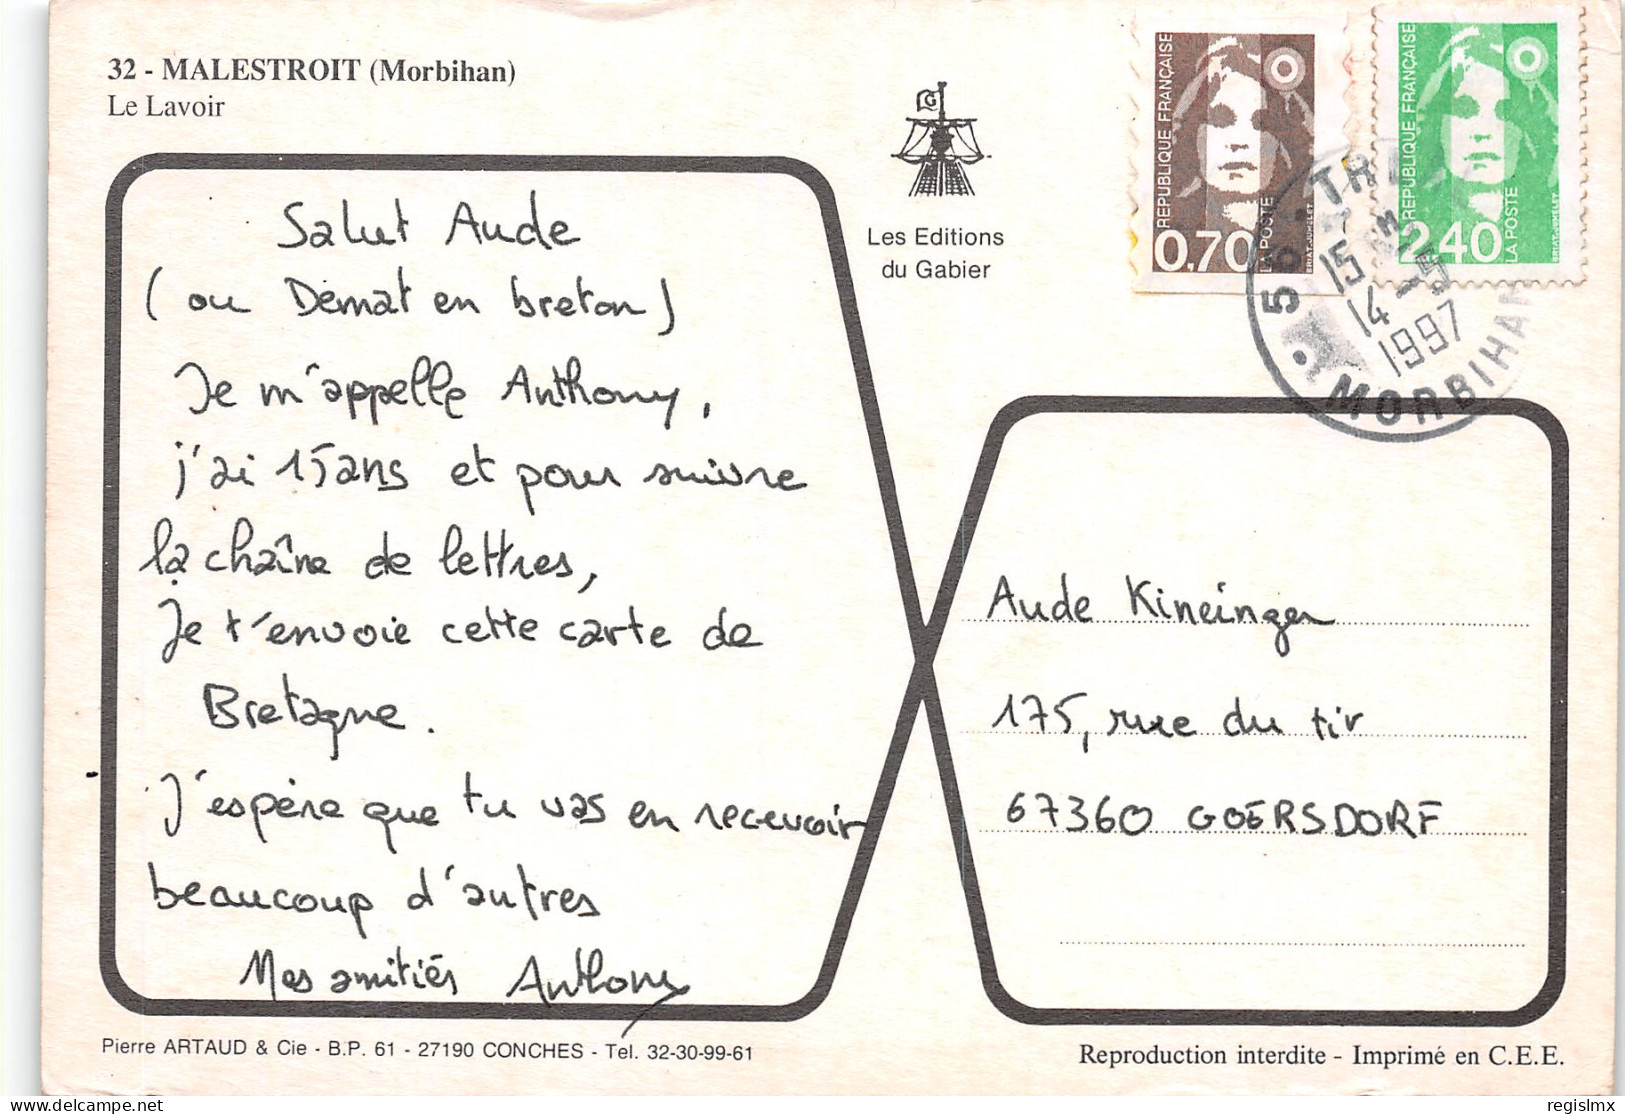 32 - MALESTROIT (Morbihan)
Le Lavoir
G
Les Editions
du Gabier
REPUBLIQUE FRANÇAISE
0,70
LA POSTE
BRIAT-JUMELET
REPUBLIQUE FRANÇAISE
2,40
LA POSTE
BRIAT-JUMELET
56
15
14
1997
MORBIHAN
Salut Aude
(ou Démat en breton)
Je m'appelle Anthony,
j'ai 15 ans et pour suivre
la chaîne de lettres,
Je t'envoie cette carte de
Bretagne.
J'espère que tu vas en recevoir
beaucoup d'autres
Mes amitiés Anthony
Aude Kineinger
175, rue du tir
67360 GOERSDORF
Pierre ARTAUD & Cie - B.P. 61 - 27190 CONCHES - Tel. 32-30-99-61
Reproduction interdite - Imprimé en C.E.E.
delcampe.net
regislmx